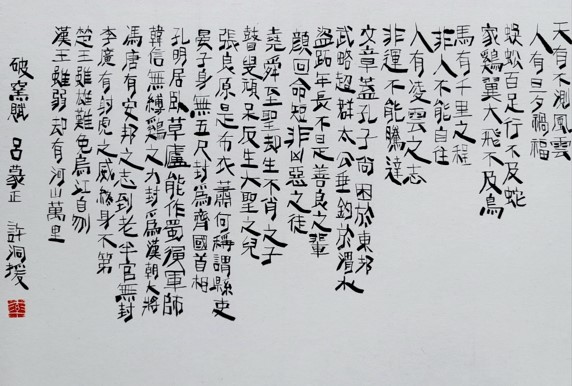 天有不測風雲
人有旦夕禍福
蜈蚣百足行不及蛇
家鷄翼大飛不及鳥
馬有千里之程
非人不能自往
人有凌雲之志
非運不能騰達
文章蓋孔子尚困於東邦
武略超群太公垂釣於渭水
盜跖年長不是善良之輩
顏回命短非凶惡之徒
堯舜至聖却生不肖之子
瞽叟頑呆反生大聖之兒
張良原是布衣蕭何稱謂縣吏
晏子身無五尺封爲齊國首相
孔明居臥草廬能作蜀漢軍師
韓信無縛鷄之力封爲漢朝大將
馮唐有安邦之志到老半官無封
李廣有射虎之威終身不第
楚王雖雄難免烏江自刎
漢王雖弱却有河山萬里
破窯賦 呂蒙正 許洞援